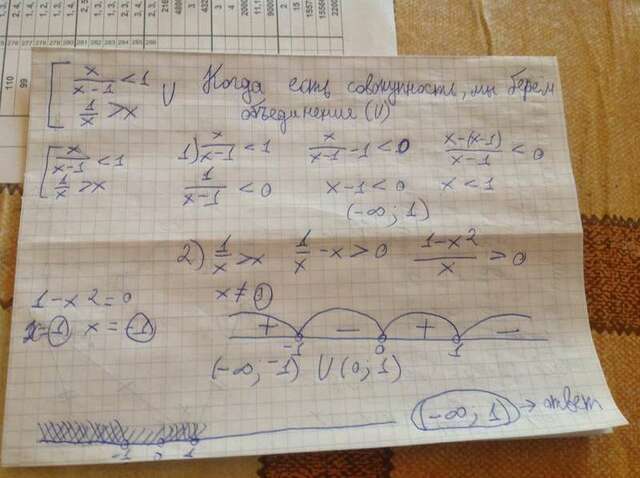 [ x/(x-1) < 1 U Когда есть совокупность, мы берем
1/x > x объединение (U)
[ x/(x-1) < 1 1) x/(x-1) < 1 x/(x-1) - 1 < 0 (x-(x-1))/(x-1) < 0
1/x > x 1/(x-1) < 0 x-1 < 0 x < 1
(-∞; 1)
2) 1/x > x 1/x - x > 0 (1-x²)/x > 0
1-x²=0 x ≠ 0
x=1 x=-1 + - + -
-1 0 1
(-∞; -1) U (0; 1)
(-∞; 1) → ответ
-1 0 1